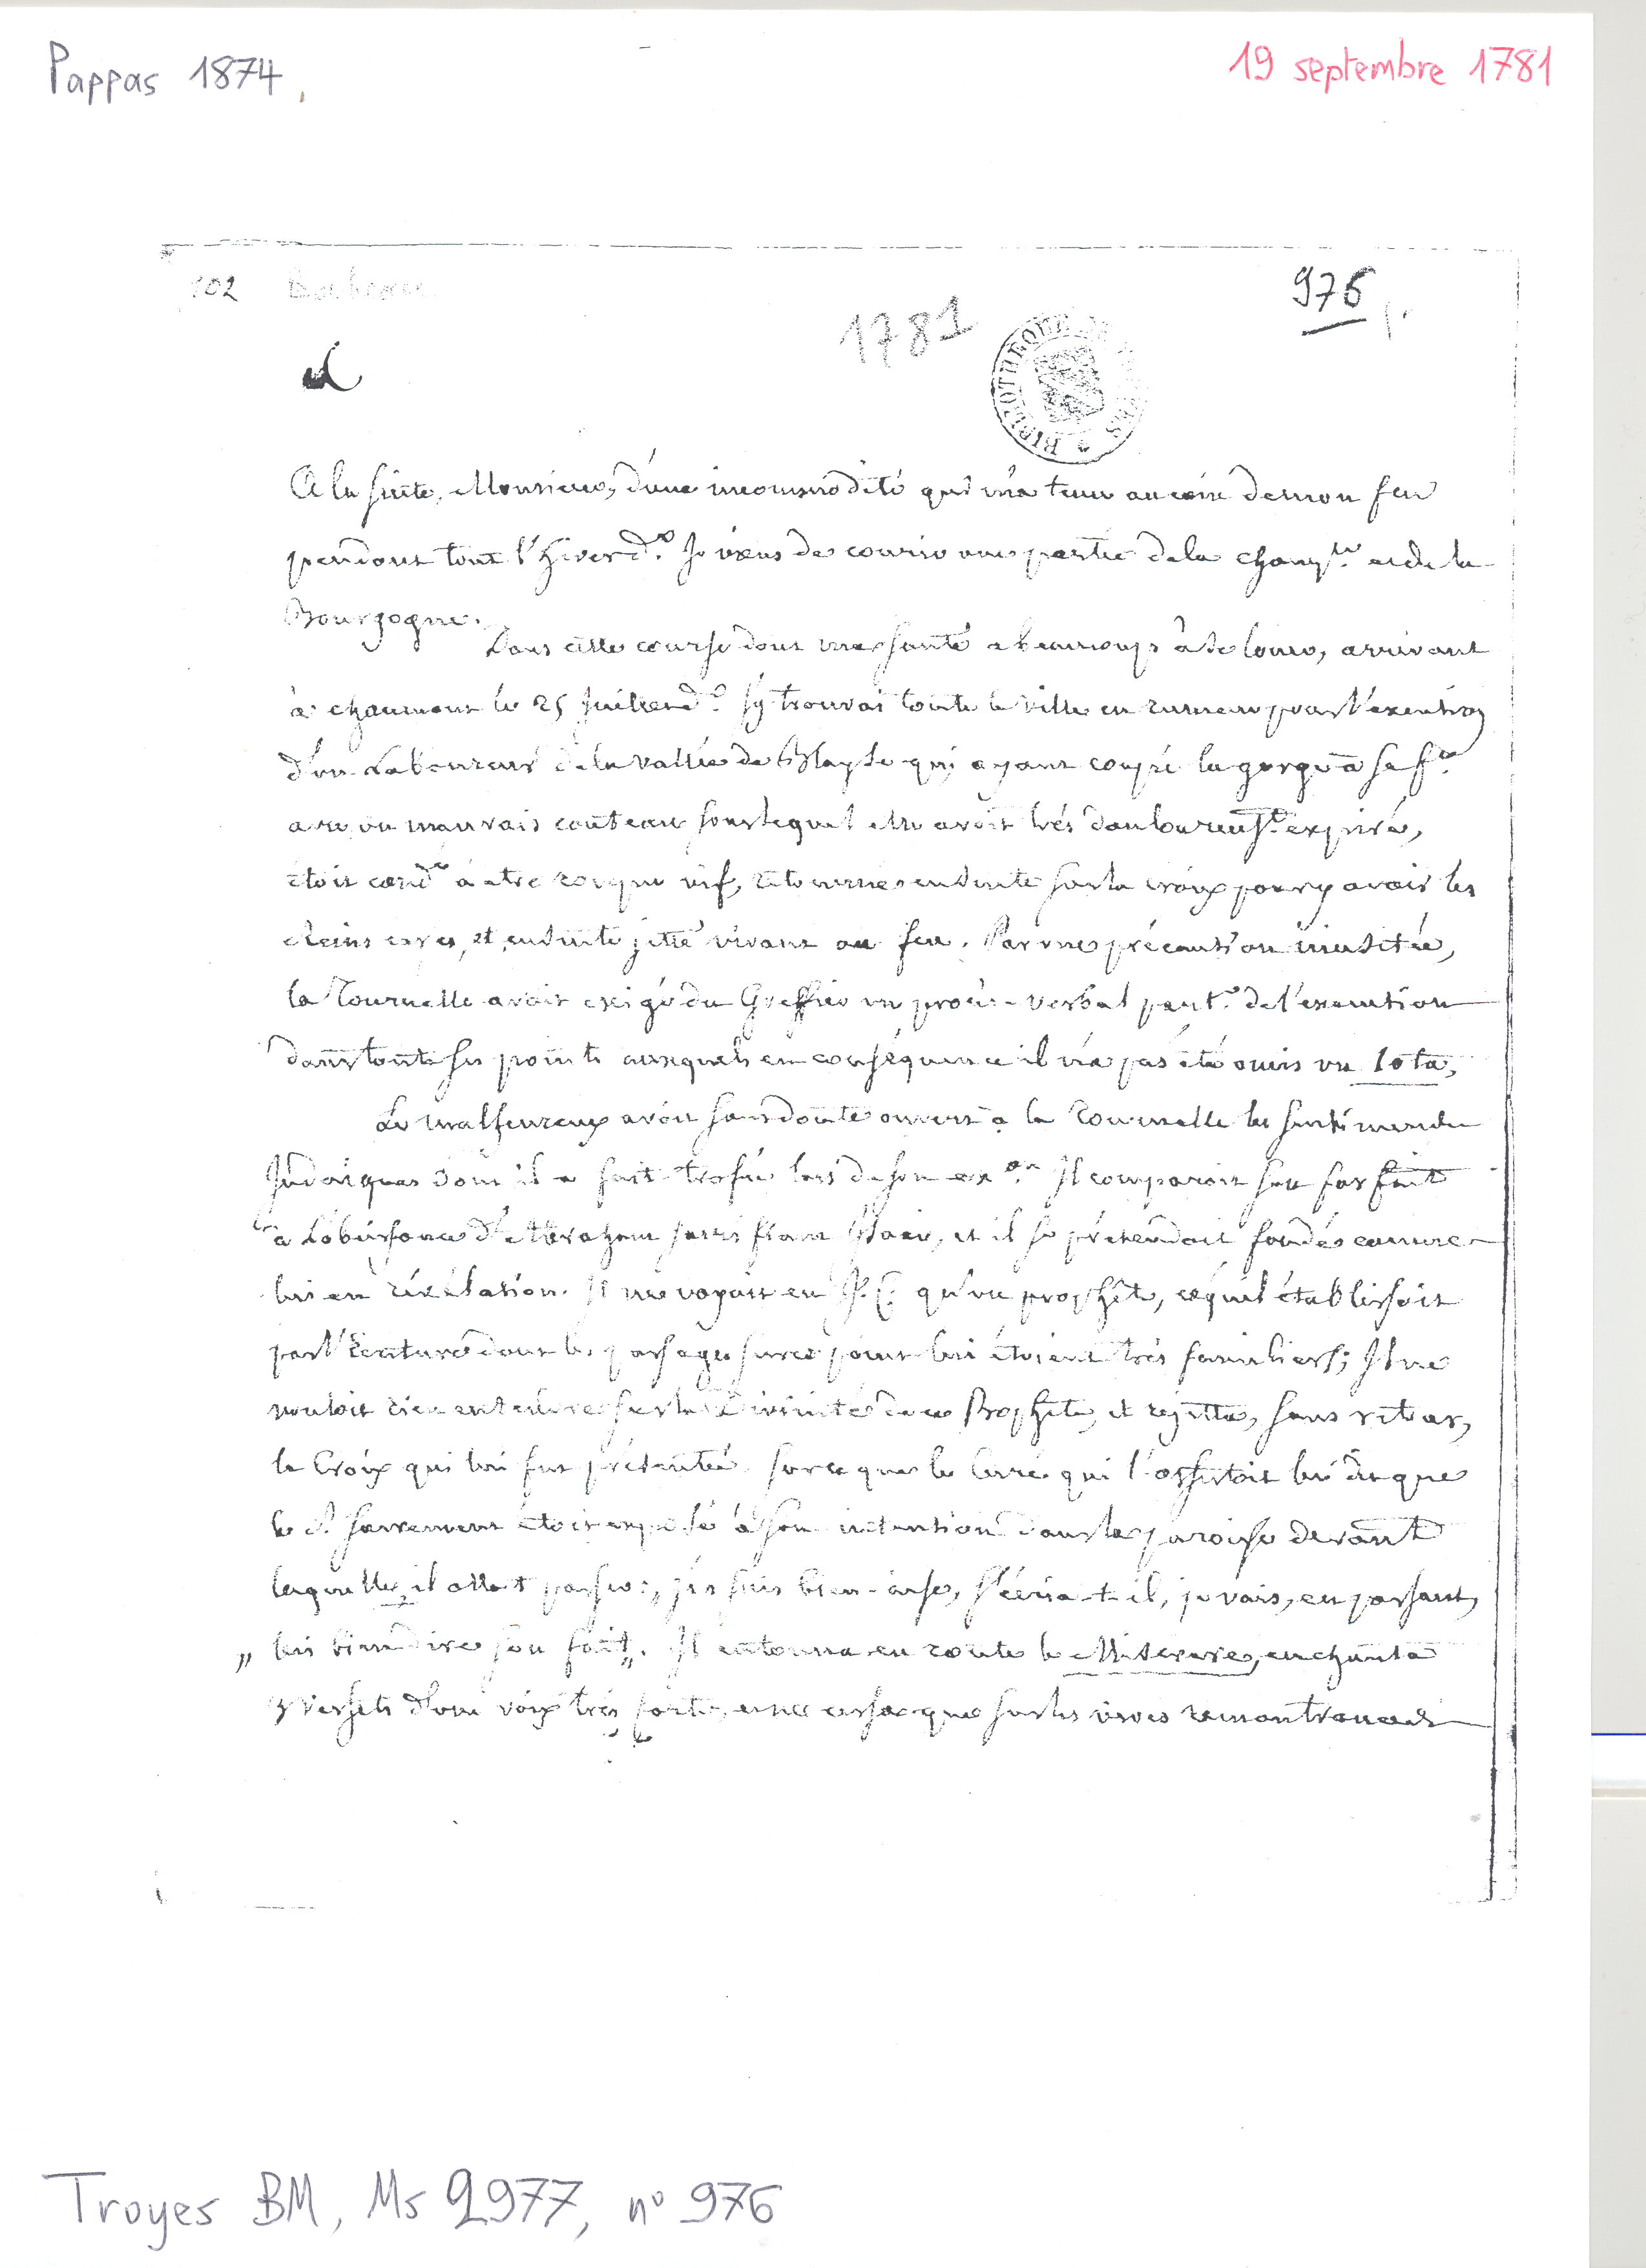 Pappas 1874
19 septembre 1781
102
976
1781
BIBLIOTHEQUE
A la suite, Monsieur, d'une incommodité qui m'a tenu au coin de mon feu
pendant tout l'hiver dr. Je viens de courir une partie de la champne et de la
Bourgogne.
Dans cette course dont ma santé a beaucoup à se louer, arrivant
à chaumont le 25 Juillet dr J'y trouvai toute la ville en rumeur pour l'exécution
d'un Laboureur de la vallée de Blayse qui ayant coupé la gorge à sa fe
avec un mauvais couteau sous lequel elle avoit très douloureust expiré,
étoit condé à etre rompu vif, retourné ensuite sur la croix pour y avoir les
Reins cassés, et ensuite jetté vivant au feu. Par une précaution inusitée,
la Tournelle avoit exigé du Greffier un procès-verbal part.r de l'execution
dans toute ses points auxquels en conséquence il n'a pas été omis un Iota.
Le malheureux avoit sans doute ouvert à la Tournelle les sentimens
Judaiques dont il a fait trofée lors de son exon. Il comparoit son forfait
à L'obéissance d'Abraham sacrifiant Isaac, et il se prétendoit fondé comme
lui en révélation. Il ne voyoit en J. C. qu'un prophète, ce qu'il établissoit
par l'Ecriture dont les passages sur ce point lui étoient très familiers; Il ne
vouloit rien entendre sur la divinité de ce Prophète, et rejetta,
la Croix qui lui fut présentée. Sur ce que le Curé qui l'assistoit lui dit que
le St Sacrement étoit exposé à son intention dans la paroisse devant
laquelle il alloit passer: „ j'en suis bien-aise, s'écria-t-il, je vais, en passant,
„ lui bien dire son fait„. Il entonna en route le Miserere, en chanta
3 versets d'une voix très forte, et ne cessa que sur les vives remontrances
Troyes BM, Ms 2977, n° 976